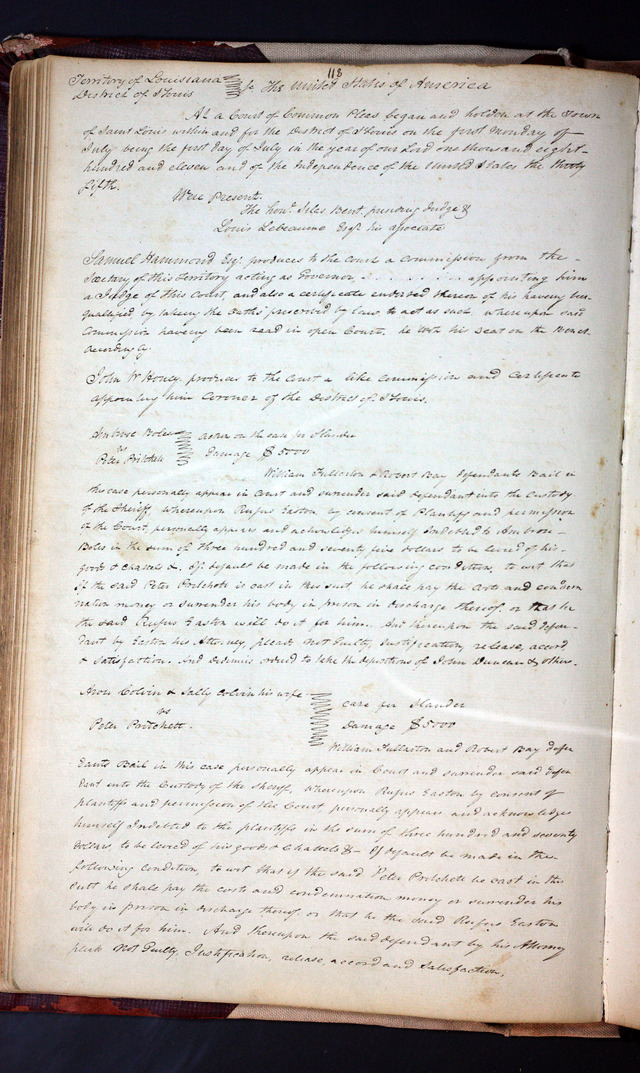 118
Territory of Louisiana
District of St Louis
ss The United States of America
At a Court of Common Pleas began and holden at the Town
of Saint Louis within and for the District of St Louis on the first Monday of
July being the first day of July in the year of our Lord one thousand eight-
hundred and eleven and of the Independence of the United States the thirty
fifth.
Were Present.
The honl. Silas Bent, presiding Judge &
Louis Lebeaume Esqr. his associate
Samuel Hammond Esqr. produces to the Court a Commission from the -
Secretary of this Territory acting as Governor, . . . . . . . . . appointing him
a Judge of this Court, and also a certificate endorsed thereon of his having been
qualified by taking the Oaths prescribed by law to act as such, whereupon said
Commission having been read in open Court. he took his seat on the Bench
accordingly.
John W Honey. produces to the Court a like Commission and Certificate
appointing him Coroner of the District of St Louis.
Ambrose Boles
vs
Peter Pritchett
action on the case for Slander
damage $5000
William Fullerton & Robert Bay defendants Bail in
this case personally appear in Court and surrender said defendant into the Custody
of the Sheriff, whereupon Rufus Easton by consent of Plantiff and permission
of the Court, personally appears and acknowledges himself Indebted to Ambrose -
Boles in the sum of three hundred and seventy five dollars to be levied of his -
goods & Chattels &. If default be made in the following condition, to wit that
if the said Peter Pritchete is cast in this suit, he shall pay the Costs and condem
nation money or surrender his body in prison in discharge thereof. or that he
the said Rufus Easton will do it for him. And hereupon the said defen-
dant by Easton his Attorney, pleads Not Guilty, Justification, release, accord
& satisfaction. And Dedimus ordered to take the depositions of John Duncan & others.
Colvin & Sally Colvin his wife
vs
Peter Pritchett.
case for Slander
Damage $5000
William Fullaston and Robert Bay defen
dants Bail in this case personally appear in Court and surrender said defen
dant into the Custody of the Sheriff, whereupon Rufus Easton by consent of
plantiffs and permission of the Court personally appears and acknowledges
himself Indebted to the plantiffs in the sum of three hundred and seventy
dollars, to be levied of his goods & Chattels &- If default be made in the
following condition, to wit that if the said Peter Pritchete be cast in the
suit he shall pay the costs and condemnation money or surrender his
body in prison in discharge thereof. or that he the said Rufus Easton
will do it for him. And thereupon the said defendant by his Attorney
pleads Not Guilty, Justification, release, accord and Satisfaction.